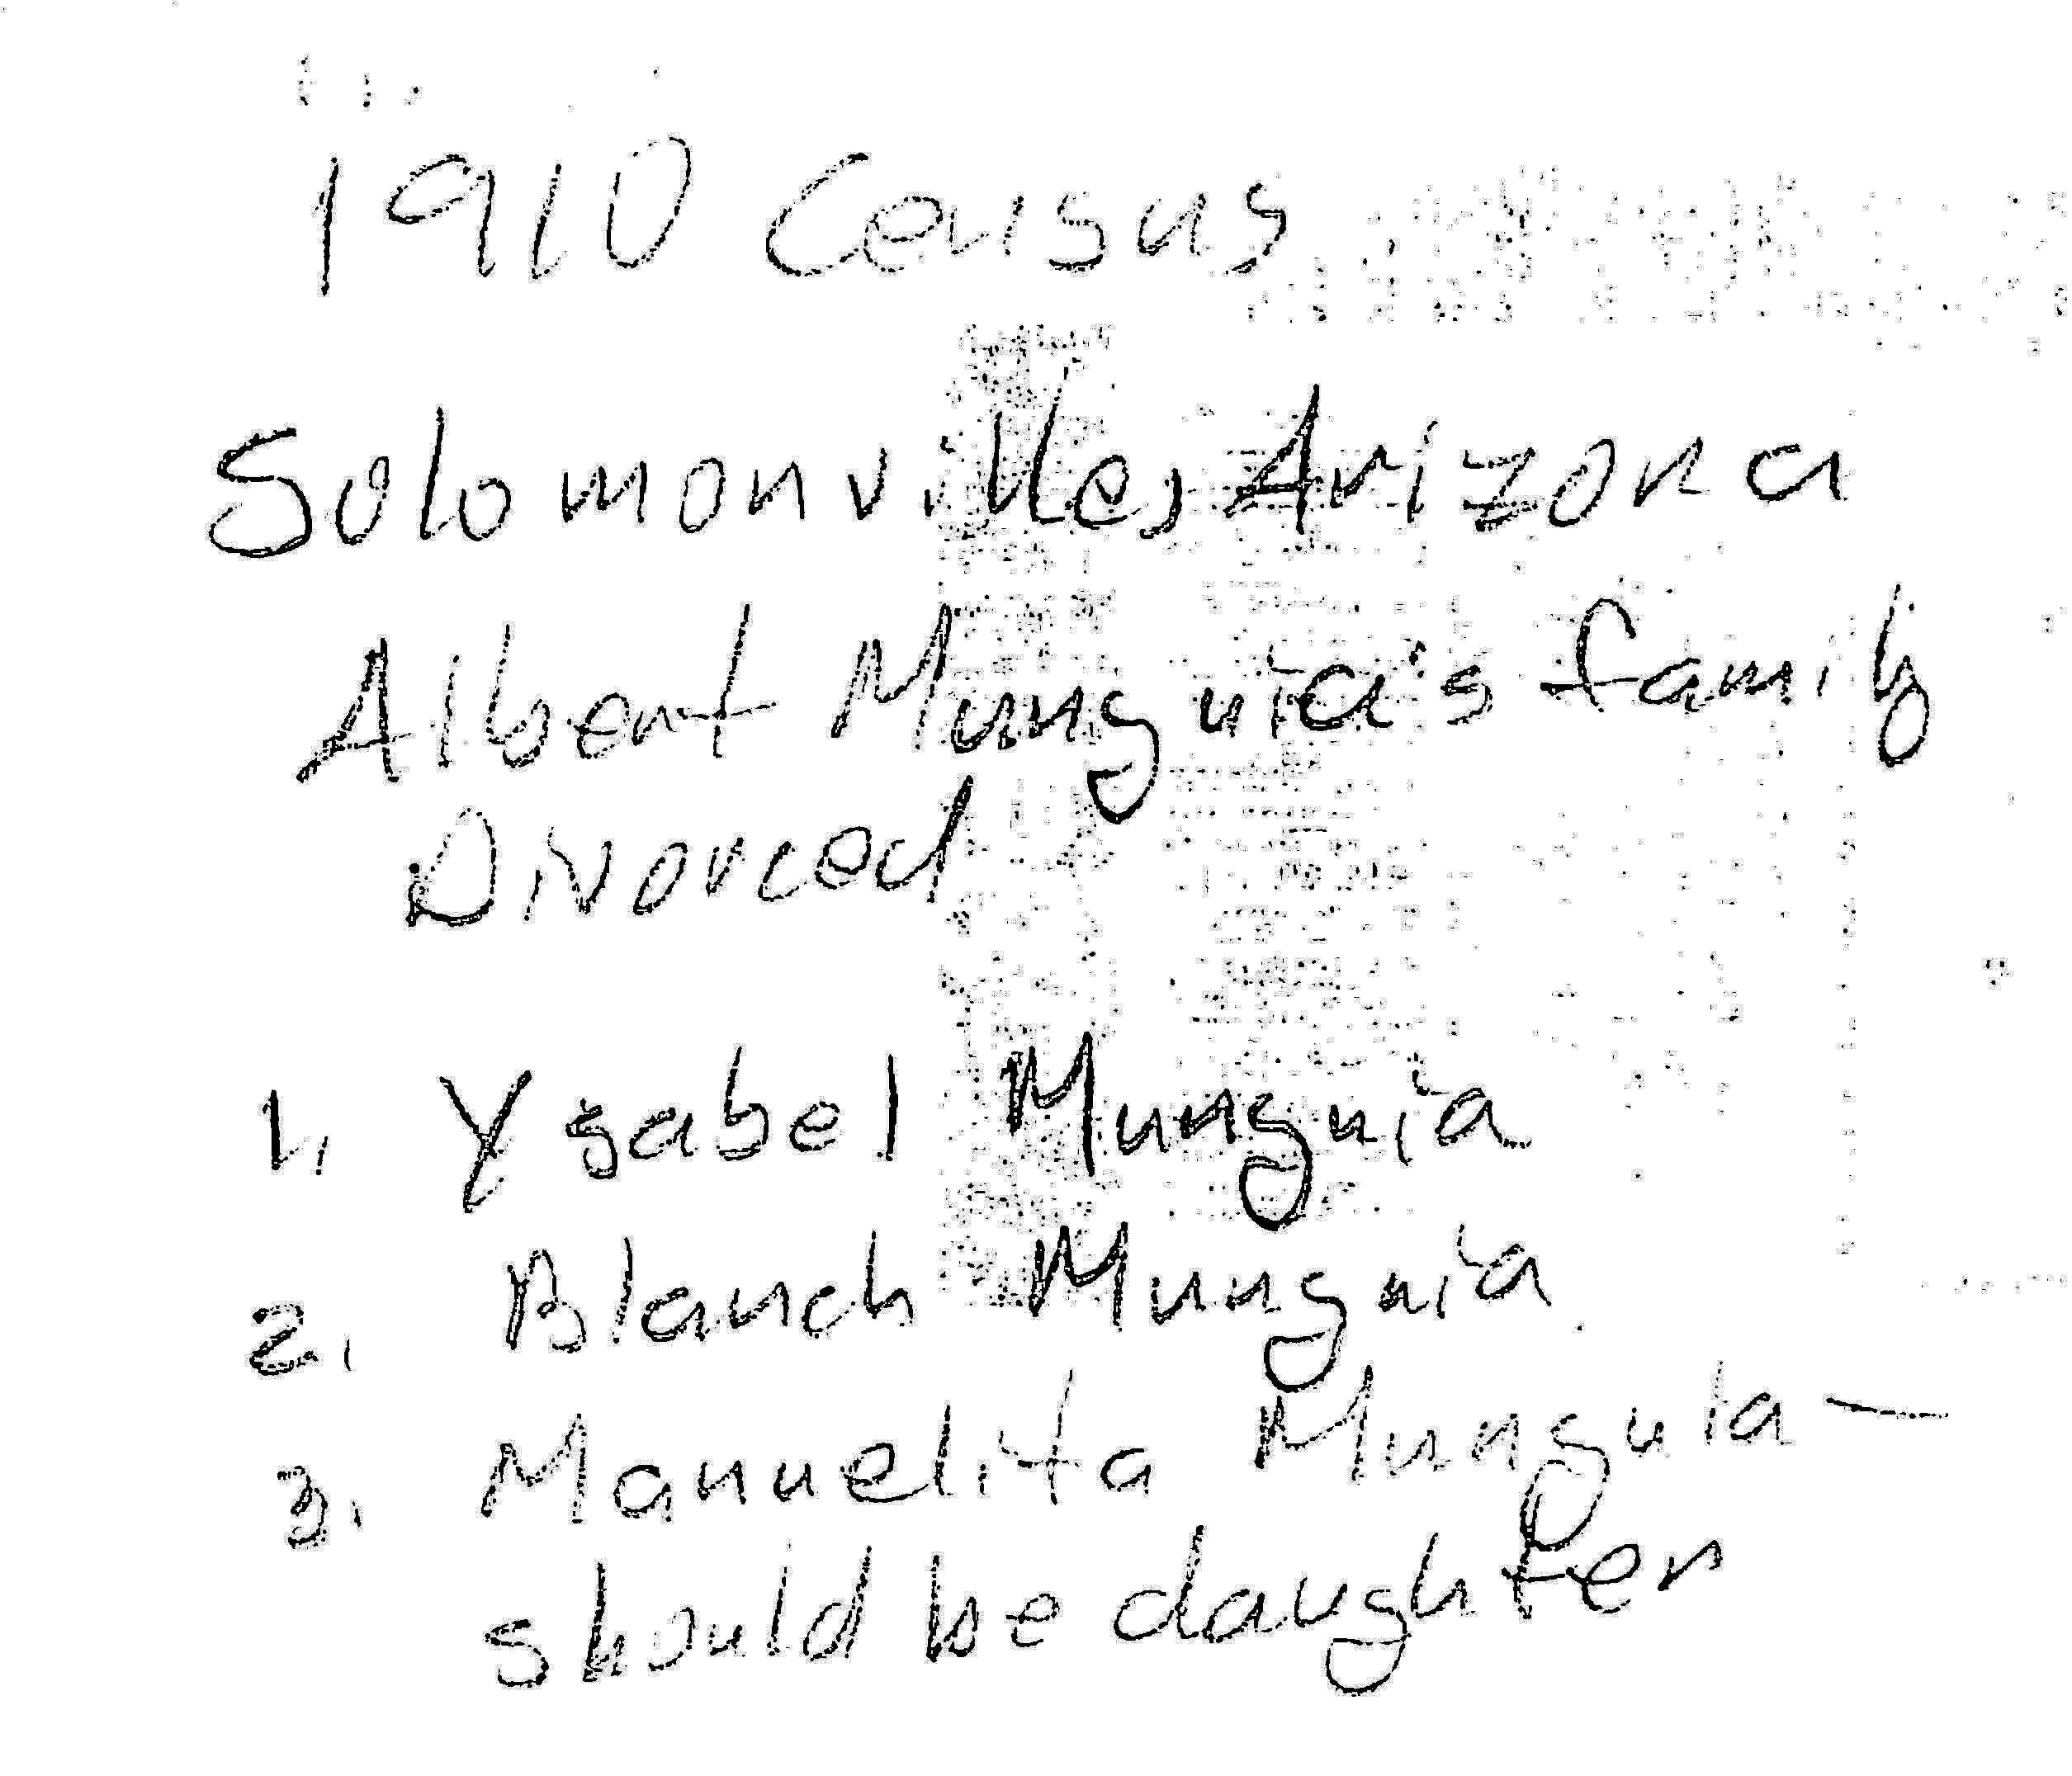 1910 Census
Solomonville, Arizona
Albert Munguia's family
Divorced
1. Ysabel Munguia
2. Blanch Munguia
3. Manuelita Munguia —
should be daughter